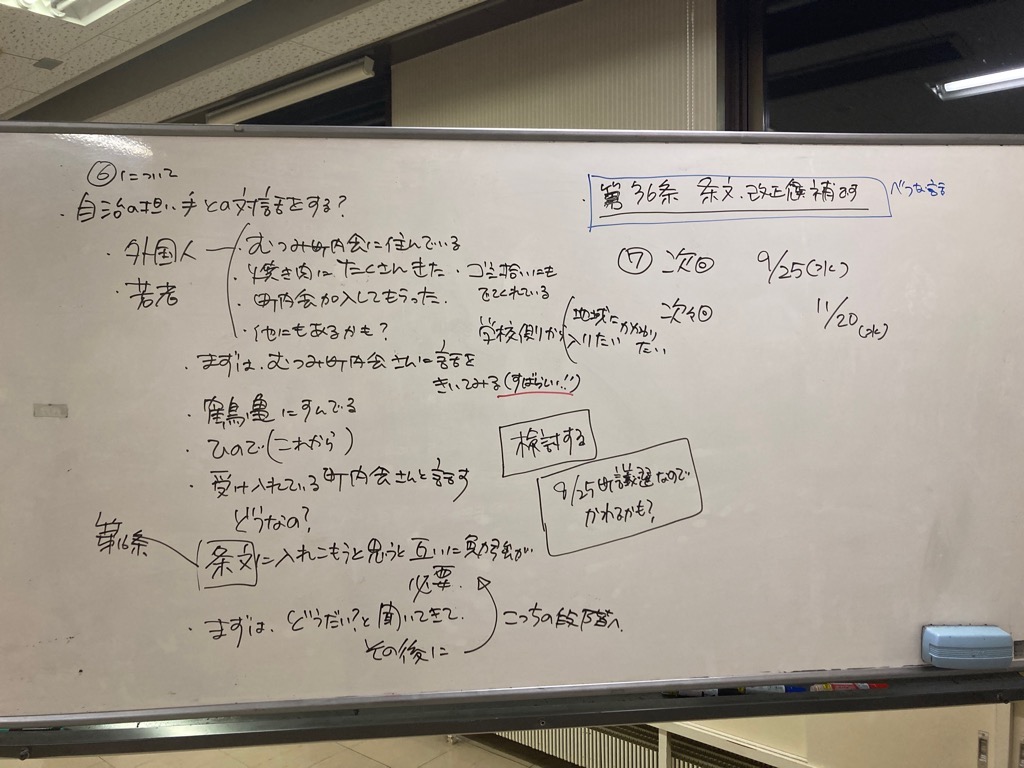 ⑥について
・自治の担い手との対話をする?
・外国人
・若者
・むつみ町内会に住んでいる
・焼き肉にたくさんきた
・ゴミ拾いにも
でてくれている
・町内会加入してもらった
・他にもあるかも?
学校側から
地域にかかわり
入りたい
たい
・まずは、むつみ町内会さんに話を
きいてみる(すばらしい!!)
・鶴亀にすんでる
・ひので(これから)
・受け入れている町内会さんと話す
どうなの?
第16条
条文に入れこもうと思うと互いに勉強が
必要.
・まずは、どうだい?と聞いてきて.
その後に
こっちの段階へ
検討する
9/25町議選なので
かわるかも?
・第36条 条文.改正候補です
べつな話
⑦ 次回 9/25(水)
次々回 11/20(水)